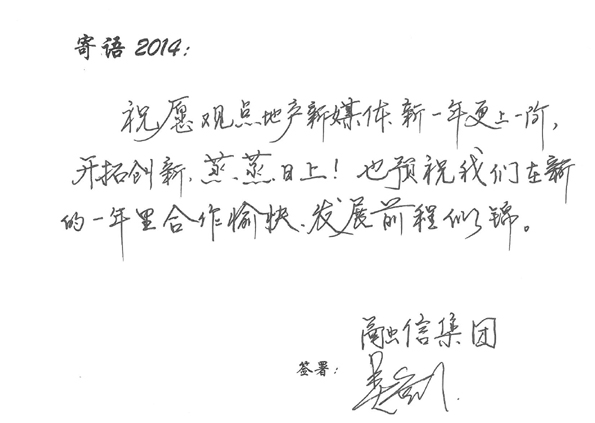 寄语 2014：
祝愿观点地产新媒体新一年更上一阶，
开拓创新、蒸蒸日上！也预祝我们在新
的一年里合作愉快、发展前程似锦。
融信集团
签署：